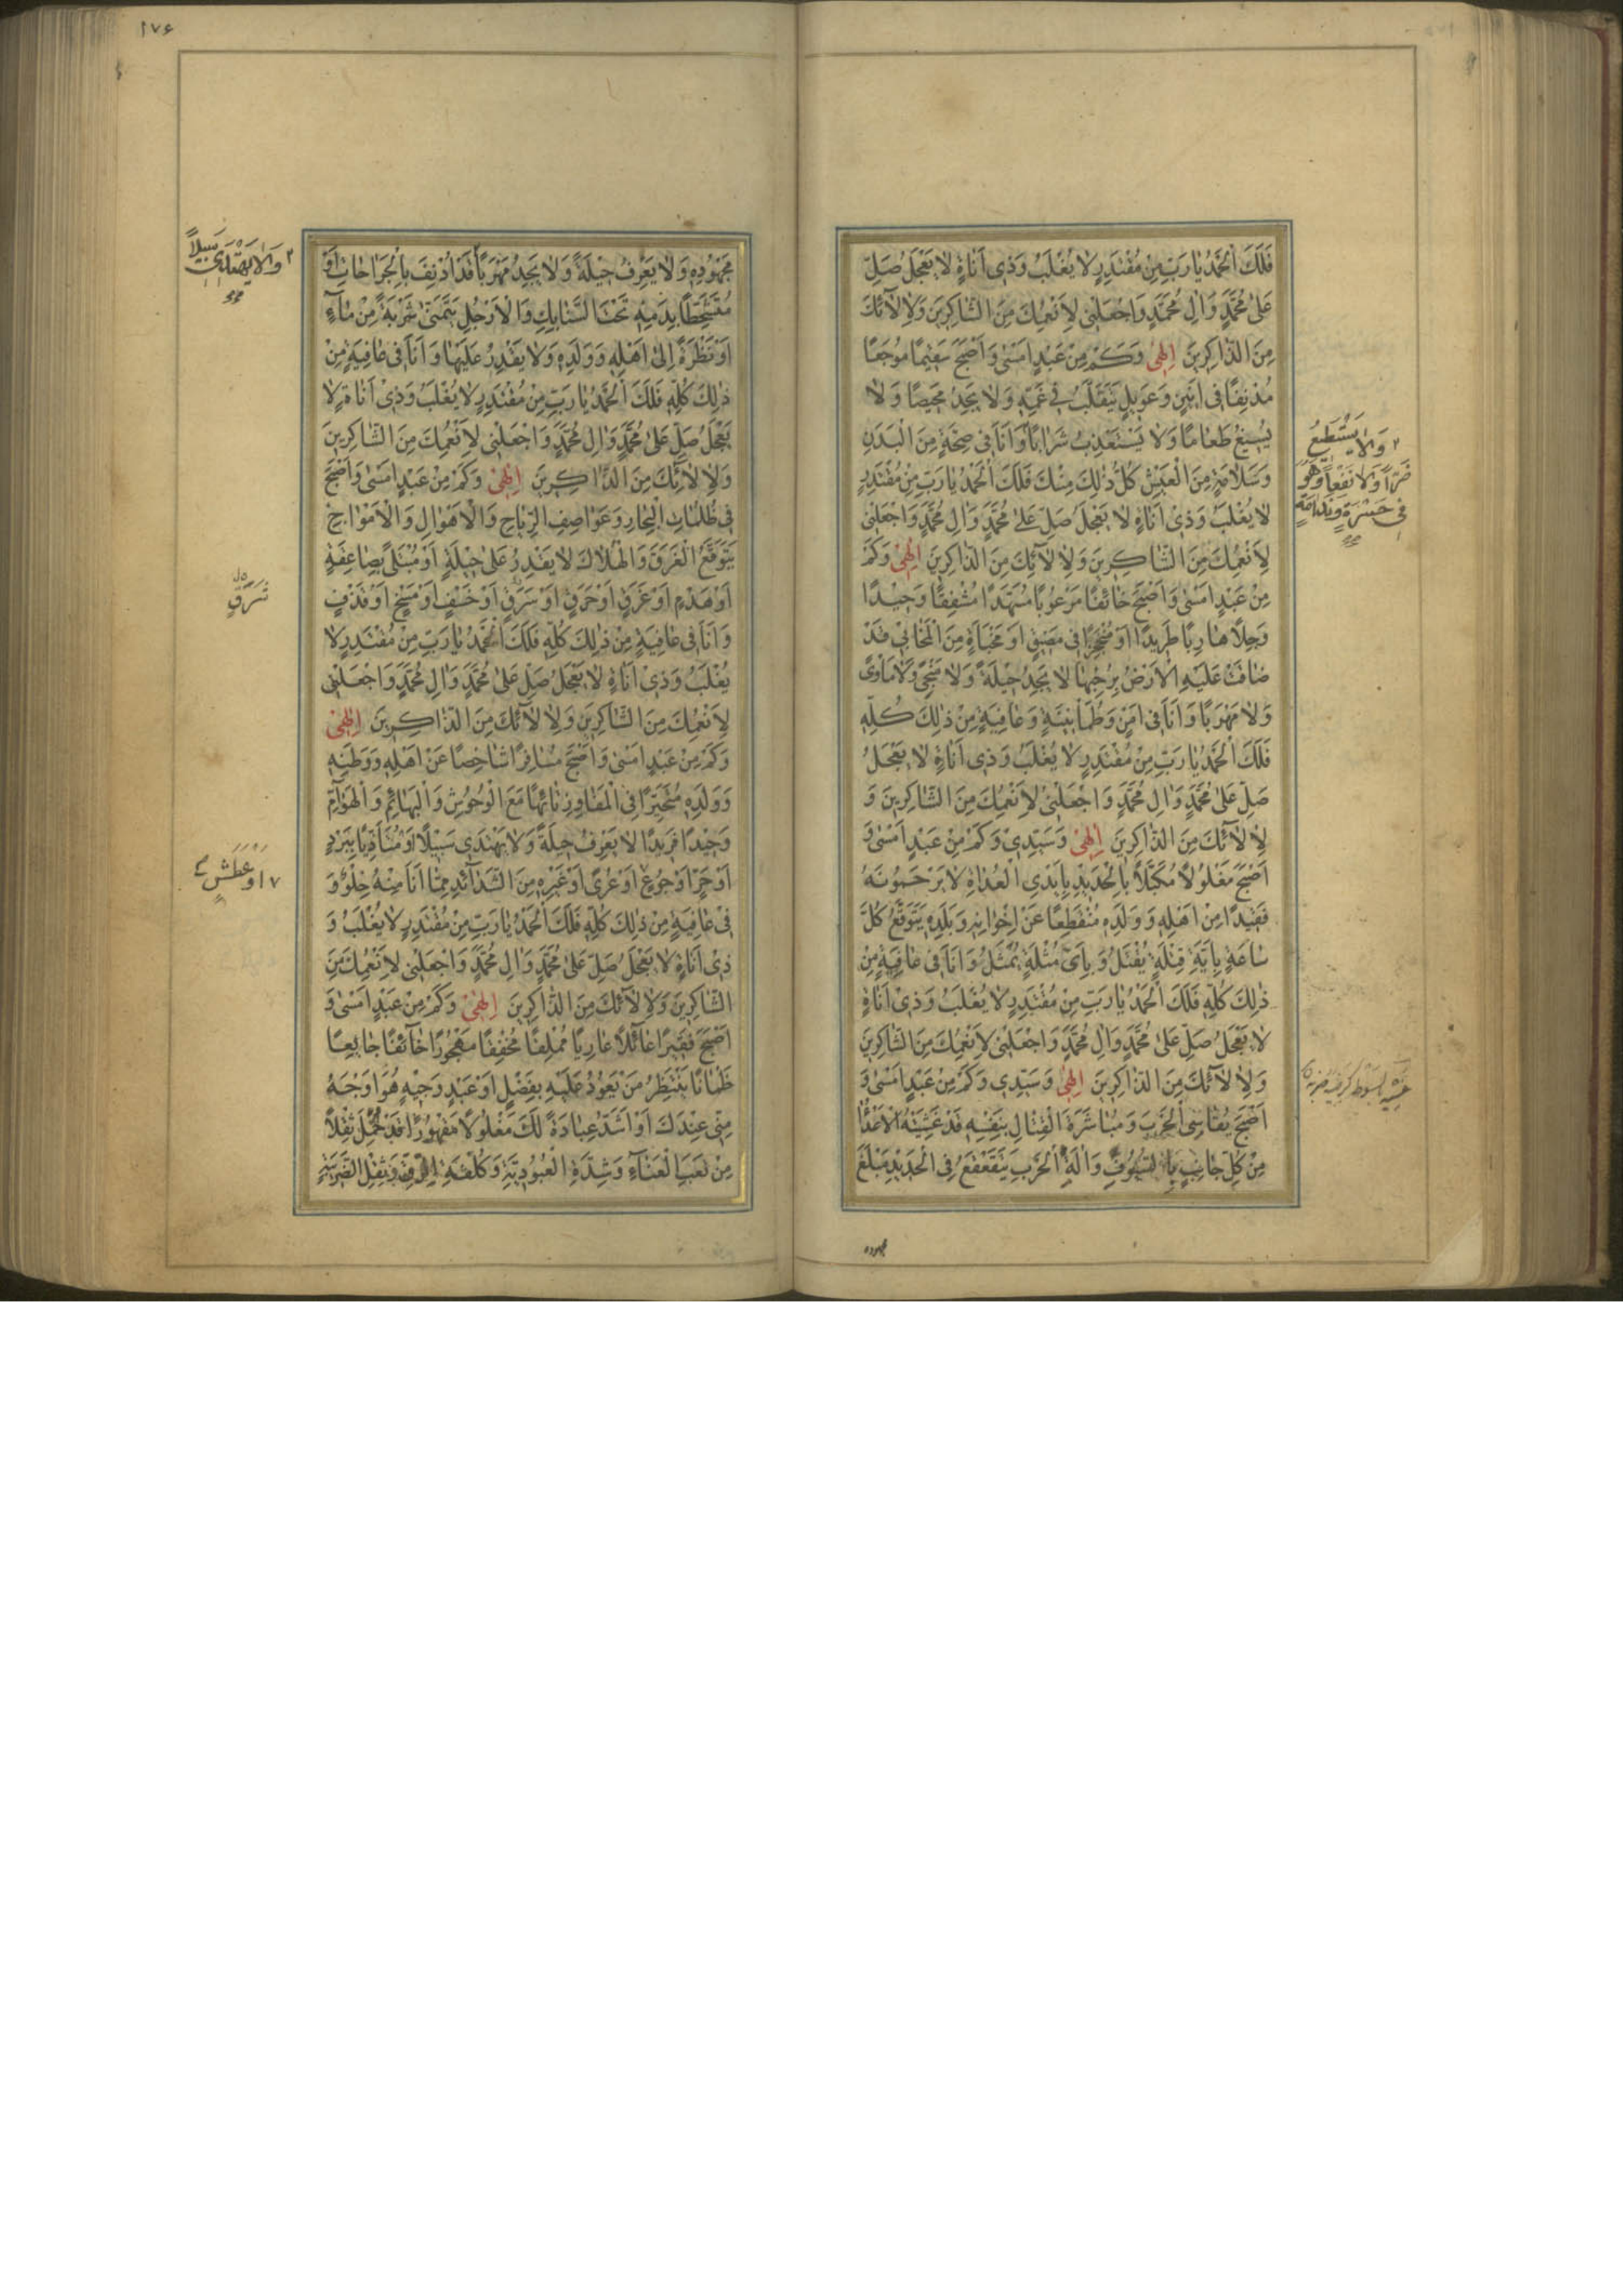 فَلَكَ الْحَمْدُ يَا رَبِّ مِنْ مُقْتَدِرٍ لَا يُغْلَبُ وَذِي أَنَاةٍ لَا يَعْجَلُ صَلِّ
عَلَى مُحَمَّدٍ وَآلِ مُحَمَّدٍ وَاجْعَلْنِي لِأَنْعُمِكَ مِنَ الشَّاكِرِينَ وَلِآلَائِكَ
مِنَ الذَّاكِرِينَ إِلٰهِي وَكَمْ مِنْ عَبْدٍ أَمْسَى وَأَصْبَحَ سَقِيمًا مُوجَعًا
مُدْنِفًا فِي أَنِينٍ وَعَوِيلٍ يَتَقَلَّبُ فِي غَمِّهِ وَلَا يَجِدُ مَحِيصًا وَلَا
يُسِيغُ طَعَامًا وَلَا يَسْتَعْذِبُ شَرَابًا وَأَنَا فِي صِحَّةٍ مِنَ الْبَدَنِ
وَلَا يَسْتَطِيعُ
ضَرًّا وَلَا نَفْعًا وَهُوَ
فِي حَسْرَةٍ وَنَدَامَةٍ
وَسَلَامَةٍ مِنَ الْعَيْشِ كُلُّ ذٰلِكَ مِنْكَ فَلَكَ الْحَمْدُ يَا رَبِّ مِنْ مُقْتَدِرٍ
لَا يُغْلَبُ وَذِي أَنَاةٍ لَا يَعْجَلُ صَلِّ عَلَى مُحَمَّدٍ وَآلِ مُحَمَّدٍ وَاجْعَلْنِي
لِأَنْعُمِكَ مِنَ الشَّاكِرِينَ وَلِآلَائِكَ مِنَ الذَّاكِرِينَ إِلٰهِي وَكَمْ
مِنْ عَبْدٍ أَمْسَى وَأَصْبَحَ خَائِفًا مَرْعُوبًا مُسَهَّدًا مُشْفِقًا وَحِيدًا
وَجِلًا هَارِبًا طَرِيدًا أَوْ مُنْجَحِرًا فِي مَضِيقٍ أَوْ مَخْبَأَةٍ مِنَ الْمَخَابِي قَدْ
ضَاقَتْ عَلَيْهِ الْأَرْضُ بِرُحْبِهَا لَا يَجِدُ حِيلَةً وَلَا مَنْجًى وَلَا مَأْوًى
وَلَا مَهْرَبًا وَأَنَا فِي أَمْنٍ وَطُمَأْنِينَةٍ وَعَافِيَةٍ مِنْ ذٰلِكَ كُلِّهِ
فَلَكَ الْحَمْدُ يَا رَبِّ مِنْ مُقْتَدِرٍ لَا يُغْلَبُ وَذِي أَنَاةٍ لَا يَعْجَلُ
صَلِّ عَلَى مُحَمَّدٍ وَآلِ مُحَمَّدٍ وَاجْعَلْنِي لِأَنْعُمِكَ مِنَ الشَّاكِرِينَ وَ
لِآلَائِكَ مِنَ الذَّاكِرِينَ إِلٰهِي وَسَيِّدِي وَكَمْ مِنْ عَبْدٍ أَمْسَى وَ
أَصْبَحَ مَغْلُولًا مُكَبَّلًا بِالْحَدِيدِ بِأَيْدِي الْعُدَاةِ لَا يَرْحَمُونَهُ
فَقِيدًا مِنْ أَهْلِهِ وَوَلَدِهِ مُنْقَطِعًا عَنْ إِخْوَانِهِ وَبَلَدِهِ يَتَوَقَّعُ كُلَّ
سَاعَةٍ بِأَيَّةِ قِتْلَةٍ يُقْتَلُ وَبِأَيِّ مُثْلَةٍ يُمَثَّلُ وَأَنَا فِي عَافِيَةٍ مِنْ
ذٰلِكَ كُلِّهِ فَلَكَ الْحَمْدُ يَا رَبِّ مِنْ مُقْتَدِرٍ لَا يُغْلَبُ وَذِي أَنَاةٍ
لَا يَعْجَلُ صَلِّ عَلَى مُحَمَّدٍ وَآلِ مُحَمَّدٍ وَاجْعَلْنِي لِأَنْعُمِكَ مِنَ الشَّاكِرِينَ
وَلِآلَائِكَ مِنَ الذَّاكِرِينَ إِلٰهِي وَسَيِّدِي وَكَمْ مِنْ عَبْدٍ أَمْسَى وَ
أَصْبَحَ يُقَاسِي الْحَرْبَ وَمُبَاشَرَةَ الْقِتَالِ بِنَفْسِهِ قَدْ غَشِيَتْهُ الْأَعْدَاءُ
مِنْ كُلِّ جَانِبٍ بِالسُّيُوفِ وَآلَةِ الْحَرْبِ يَتَقَعْقَعُ فِي الْحَدِيدِ مَبْلَغَ
مجهوده
١٧٤
مَجْهُودِهِ وَلَا يَعْرِفُ حِيلَةً وَلَا يَجِدُ مَهْرَبًا قَدْ أُدْنِفَ بِالْجَرَاحَاتِ أَوْ
وَلَا يَهْتَدِي سَبِيلًا
مُتَشَحِّطًا بِدَمِهِ تَحْتَ السَّنَابِكِ وَالْأَرْجُلِ يَتَمَنَّى شَرْبَةً مِنْ مَاءٍ
أَوْ نَظْرَةً إِلَى أَهْلِهِ وَوَلَدِهِ وَلَا يَقْدِرُ عَلَيْهَا وَأَنَا فِي عَافِيَةٍ مِنْ
ذٰلِكَ كُلِّهِ فَلَكَ الْحَمْدُ يَا رَبِّ مِنْ مُقْتَدِرٍ لَا يُغْلَبُ وَذِي أَنَاةٍ لَا
يَعْجَلُ صَلِّ عَلَى مُحَمَّدٍ وَآلِ مُحَمَّدٍ وَاجْعَلْنِي لِأَنْعُمِكَ مِنَ الشَّاكِرِينَ
وَلِآلَائِكَ مِنَ الذَّاكِرِينَ إِلٰهِي وَكَمْ مِنْ عَبْدٍ أَمْسَى وَأَصْبَحَ
فِي ظُلُمَاتِ الْبِحَارِ وَعَوَاصِفِ الرِّيَاحِ وَالْأَهْوَالِ وَالْأَمْوَاجِ
يَتَوَقَّعُ الْغَرَقَ وَالْهَلَاكَ لَا يَقْدِرُ عَلَى حِيلَةٍ أَوْ مُبْتَلًى بِصَاعِقَةٍ
أَوْ هَدْمٍ أَوْ غَرَقٍ أَوْ حَرَقٍ أَوْ سَرَقٍ أَوْ خَسْفٍ أَوْ مَسْخٍ أَوْ قَذْفٍ
وَأَنَا فِي عَافِيَةٍ مِنْ ذٰلِكَ كُلِّهِ فَلَكَ الْحَمْدُ يَا رَبِّ مِنْ مُقْتَدِرٍ لَا
يُغْلَبُ وَذِي أَنَاةٍ لَا يَعْجَلُ صَلِّ عَلَى مُحَمَّدٍ وَآلِ مُحَمَّدٍ وَاجْعَلْنِي
لِأَنْعُمِكَ مِنَ الشَّاكِرِينَ وَلِآلَائِكَ مِنَ الذَّاكِرِينَ إِلٰهِي
وَكَمْ مِنْ عَبْدٍ أَمْسَى وَأَصْبَحَ مُسَافِرًا شَاخِصًا عَنْ أَهْلِهِ وَوَطَنِهِ
وَوَلَدِهِ مُتَحَيِّرًا فِي الْمَفَاوِزِ تَائِهًا مَعَ الْوُحُوشِ وَالْبَهَائِمِ وَالْهَوَامِّ
وَحِيدًا فَرِيدًا لَا يَعْرِفُ حِيلَةً وَلَا يَهْتَدِي سَبِيلًا أَوْ مُتَأَذِّيًا بِبَرْدٍ
أَوْ حَرٍّ أَوْ جُوعٍ أَوْ عُرْيٍ أَوْ غَيْرِهِ مِنَ الشَّدَائِدِ مِمَّا أَنَا مِنْهُ خِلْوٌ وَ
أَوْ عَطَشٍ
فِي عَافِيَةٍ مِنْ ذٰلِكَ كُلِّهِ فَلَكَ الْحَمْدُ يَا رَبِّ مِنْ مُقْتَدِرٍ لَا يُغْلَبُ وَ
ذِي أَنَاةٍ لَا يَعْجَلُ صَلِّ عَلَى مُحَمَّدٍ وَآلِ مُحَمَّدٍ وَاجْعَلْنِي لِأَنْعُمِكَ مِنَ
الشَّاكِرِينَ وَلِآلَائِكَ مِنَ الذَّاكِرِينَ إِلٰهِي وَكَمْ مِنْ عَبْدٍ أَمْسَى وَ
أَصْبَحَ فَقِيرًا عَائِلًا عَارِيًا مُمْلِقًا مُخْفِقًا مَهْجُورًا خَائِفًا جَائِعًا
ظَمْآنًا يَنْتَظِرُ مَنْ يَعُودُ عَلَيْهِ بِفَضْلٍ أَوْ عَبْدٍ وَجِيهٍ هُوَ أَوْجَهُ
مِنِّي عِنْدَكَ أَوْ أَشَدُّ عِبَادَةً لَكَ مَغْلُولًا مَقْهُورًا قَدْ حُمِّلَ ثِقْلًا
مِنْ تَعَبِ الْعَنَاءِ وَشِدَّةِ الْعُبُودِيَّةِ وَكُلْفَةِ الرِّقِّ وَثِقْلِ الضَّرِيبَةِ